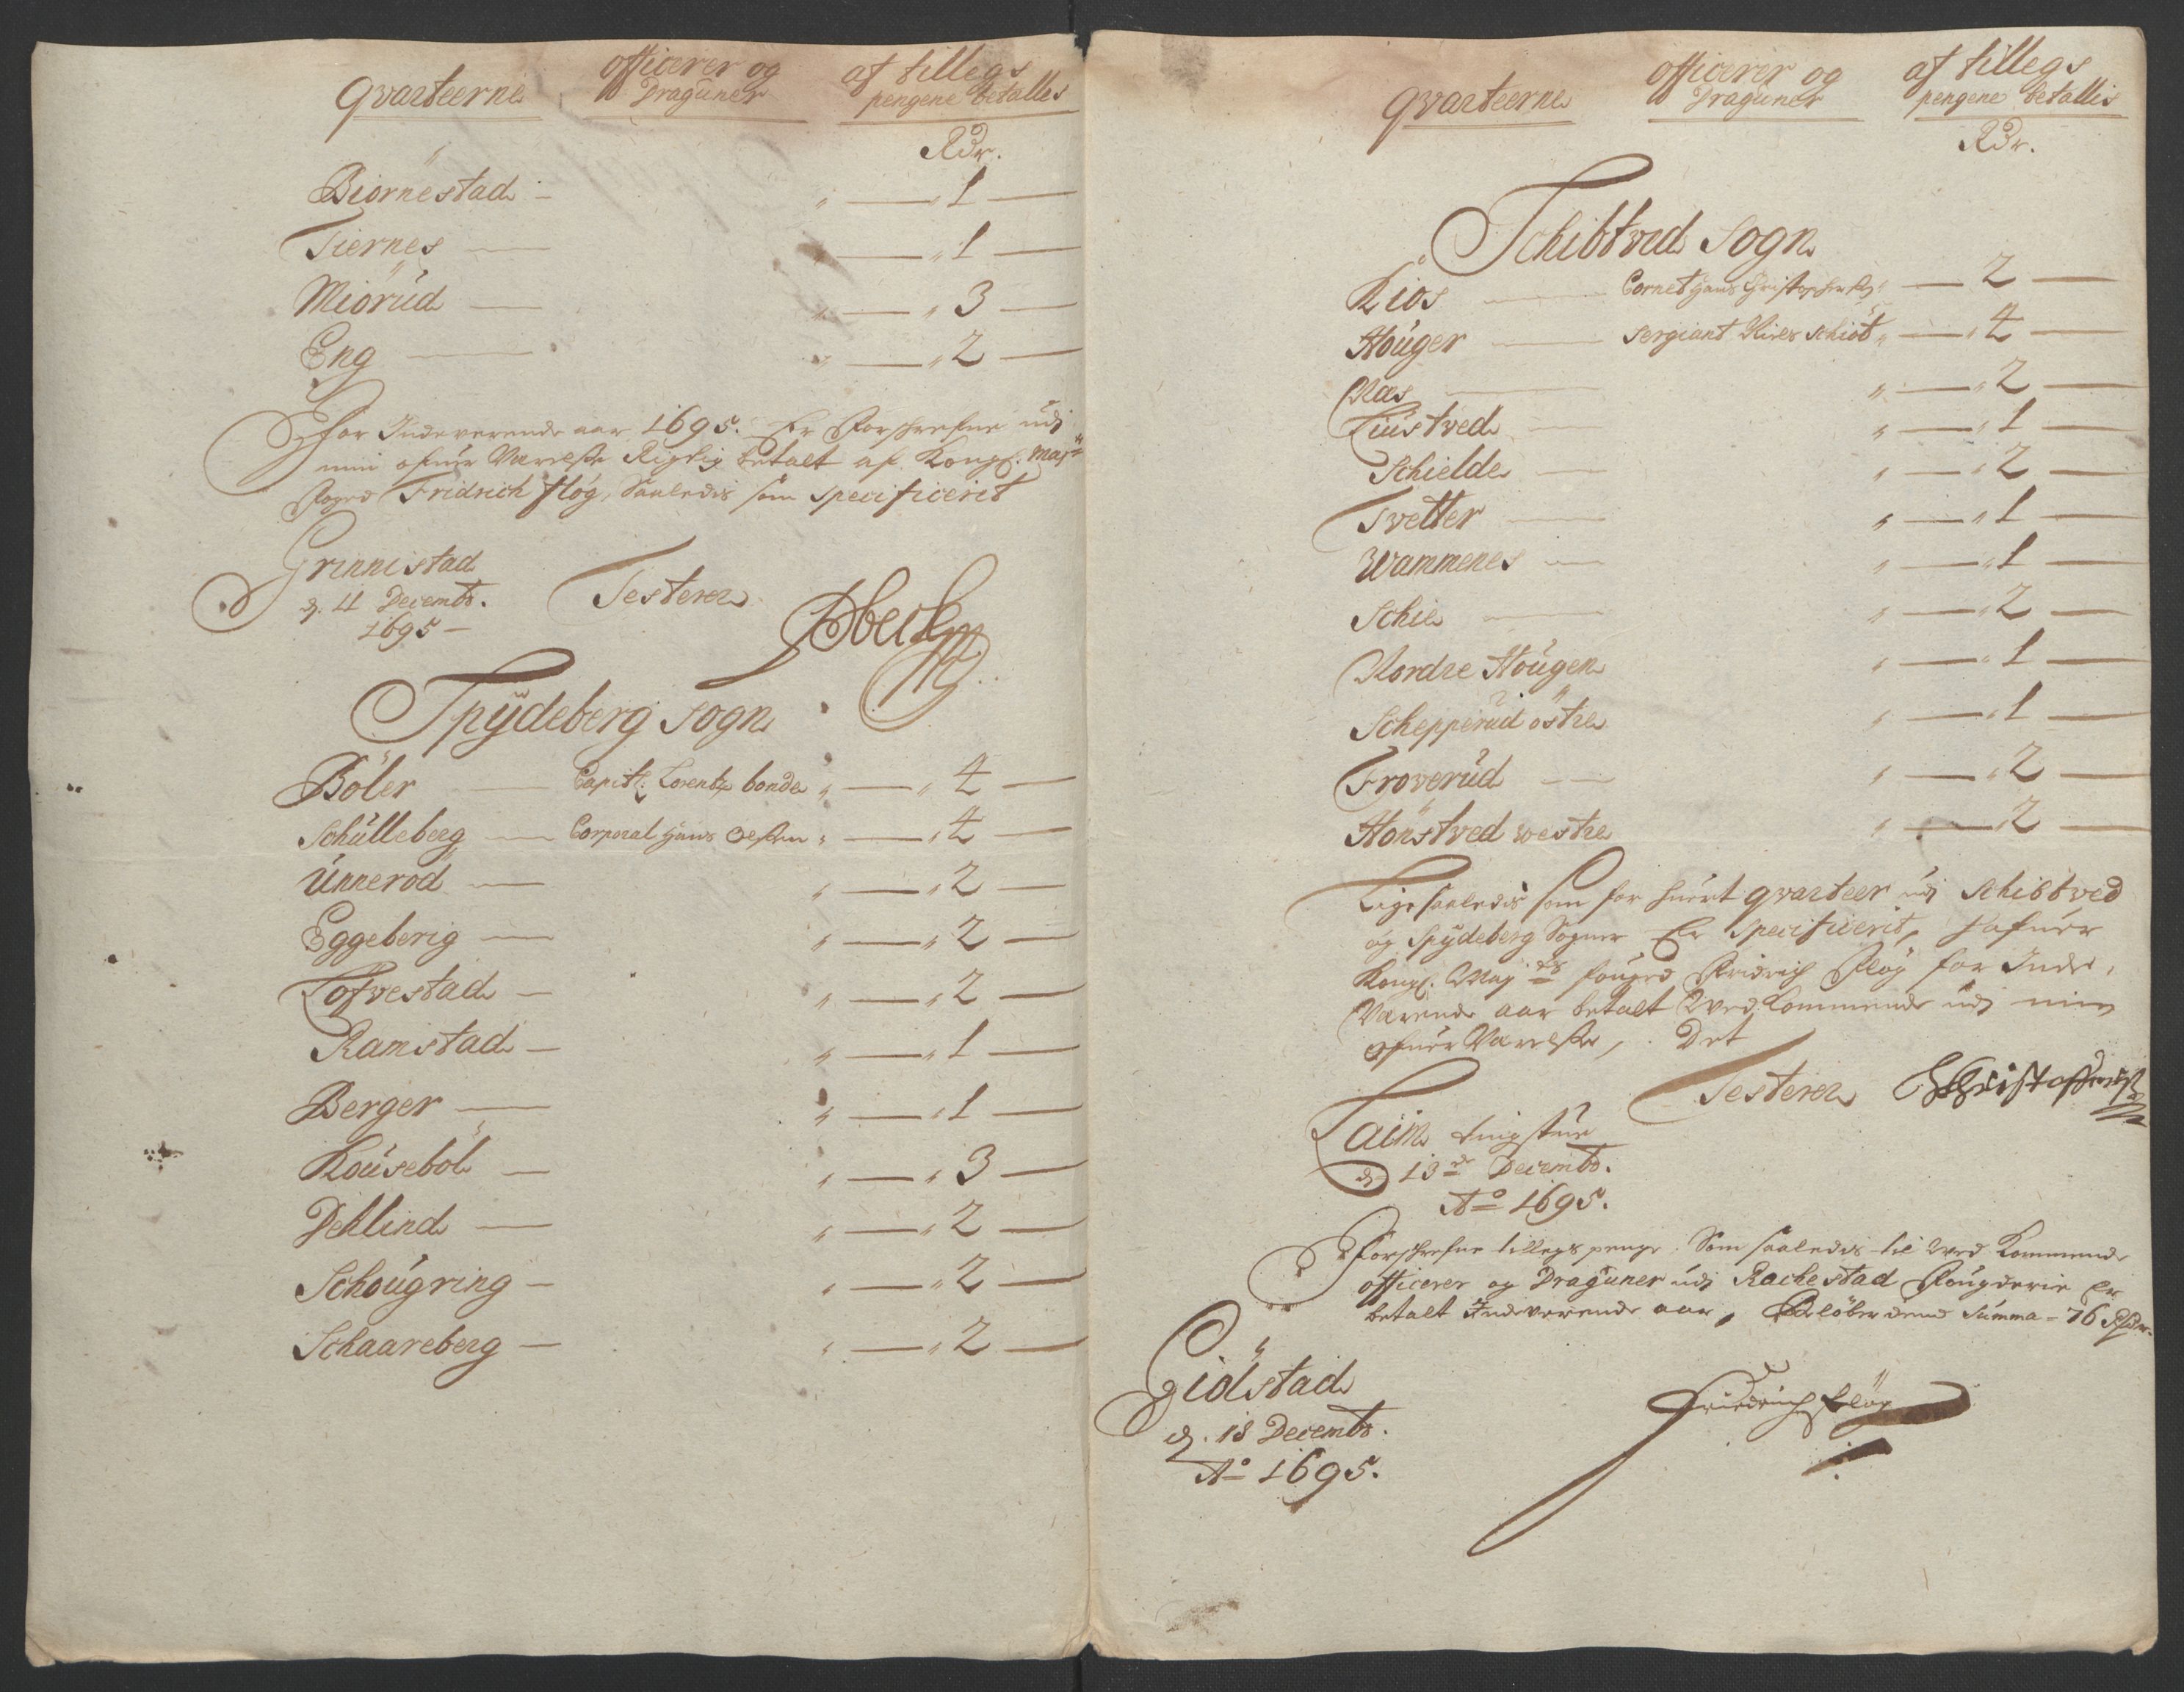 qvarteerne officerer og Draguner af tillegs pengene betallis
Rdr.
Biörnestad - " — " 1 —
Tiernes — " — " 1 —
Miörud — " — " 3 —
Eng — " — " 2 —
For Indeverende aar 1695. Er Forschrefne udj
min ofuer Værelsse Rigtig betalt af Kongl. May:ts
Foged Fridrich fløg, Saaledis som specificerit
Grinnistad
d. 11 Decembr.
1695 -
Testerer
Spÿdeberg Sogn
Böler — Capitl: Lorentz bonde " — " 4 —
Schulleberg — Corporal Hans " — " 4 —
Unneröd — " — " 2 —
Eggeberig — " — " 2 —
Lofvestad — " — " 2 —
Ramstad — " — " 1 —
Berger — " — " 1 —
Kouseböl — " — " 3 —
Dehlind — " — " 2 —
Schougring — " — " 2 —
Schaareberg — " — " 2 —
qvarteerne officerer og Draguner af tillegs pengene betallis
Rdr.
Schibtved Sogn
Kios — Cornet Hans " — 2 —
Houger — Sergiant Schiöt " — " 4 —
Næs — " — " 2 —
Liustved — " — " 1 —
Schielde — " — " 2 —
Tvetter — " — " 1 —
Wammenes — " — " 1 —
Schie — " — " 2 —
Nordre Hougen " — " 1 —
Schepperud östre " — " 1 —
Froverud — " — " 2 —
Hönstved westre " — " 2 —
Lige saaledis som for huert qvarteer udj Schibtved
og Spÿdeberg Sogner Er Specificerit, hafuer
Kongl. May:ts fouged Fridrich Fløg for Inde,
Værende aar betalt Vedkommende udj min
ofuer Værelsse, Det
Testerer
d 13de Decembr.
Ao 1695.
Forschrefne tillegs penge. Som saaledis til ved Kommende
officerer og Draguner udj Rachestad Fougderie Er
betalt Indeverende aar, Belöber dend Summa - 76 Rdr.
Giölstad
d. 18 Decembr.
Ao 1695.
Friderich fløg